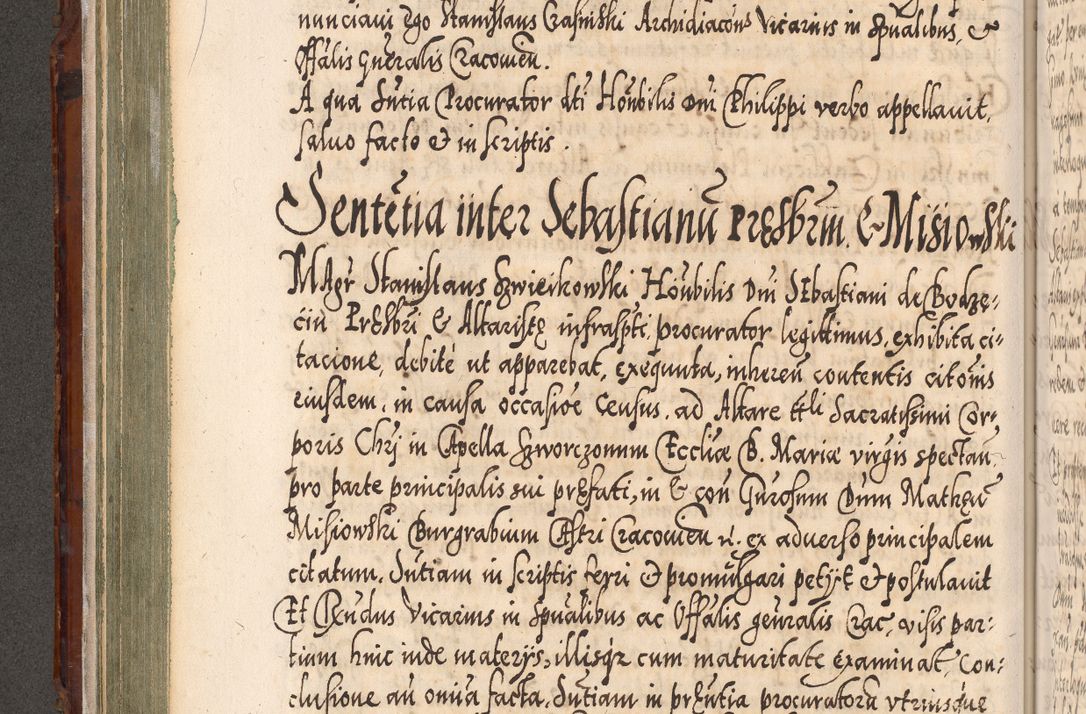 nunciavi Ego Stanislaus Crasinski Archidiacons Vicarius in spualibus, &
Offalis gnèralis Cracovien.
A qua Sntia Procurator dti Honbilis Dni Philippi verbo appellavit,
salvo facto & in scriptis.
Sententia inter Sebastianū Presbrm. & Misiowski
MAgr Stanislaus Szwieikowski Honbilis Dni SEbastiani de Bodzę-
cin Presbri & Altaristę infrascpti, procurator legittimus, exhibita ci-
tacione, debite ut apparebat, exequuta, inheren contentis citonis
eiusdem, in causa occasioe Census, ad Altare ttli Sacratissimi Cor-
poris Chrj in Capella Szworczonum Eccliæ B. Mariæ virgis spectan
pro parte principalis sui prefati, in & con Gnrosum Dnm Matheū
Misiowski Burgrabium Castri Cracovien ut ex adverso principalem
citatum, Sntiam in scriptis ferri & promulgari petijt & postulavit
Et Rendus Vicarius in spualibus ac Offalis gnralis Crac, visis par-
tium hinc inde materijs, illisqz cum maturitate examinat, Con-
clusione an omia facta, Sntiam in prèntia procuratorū vtriusque